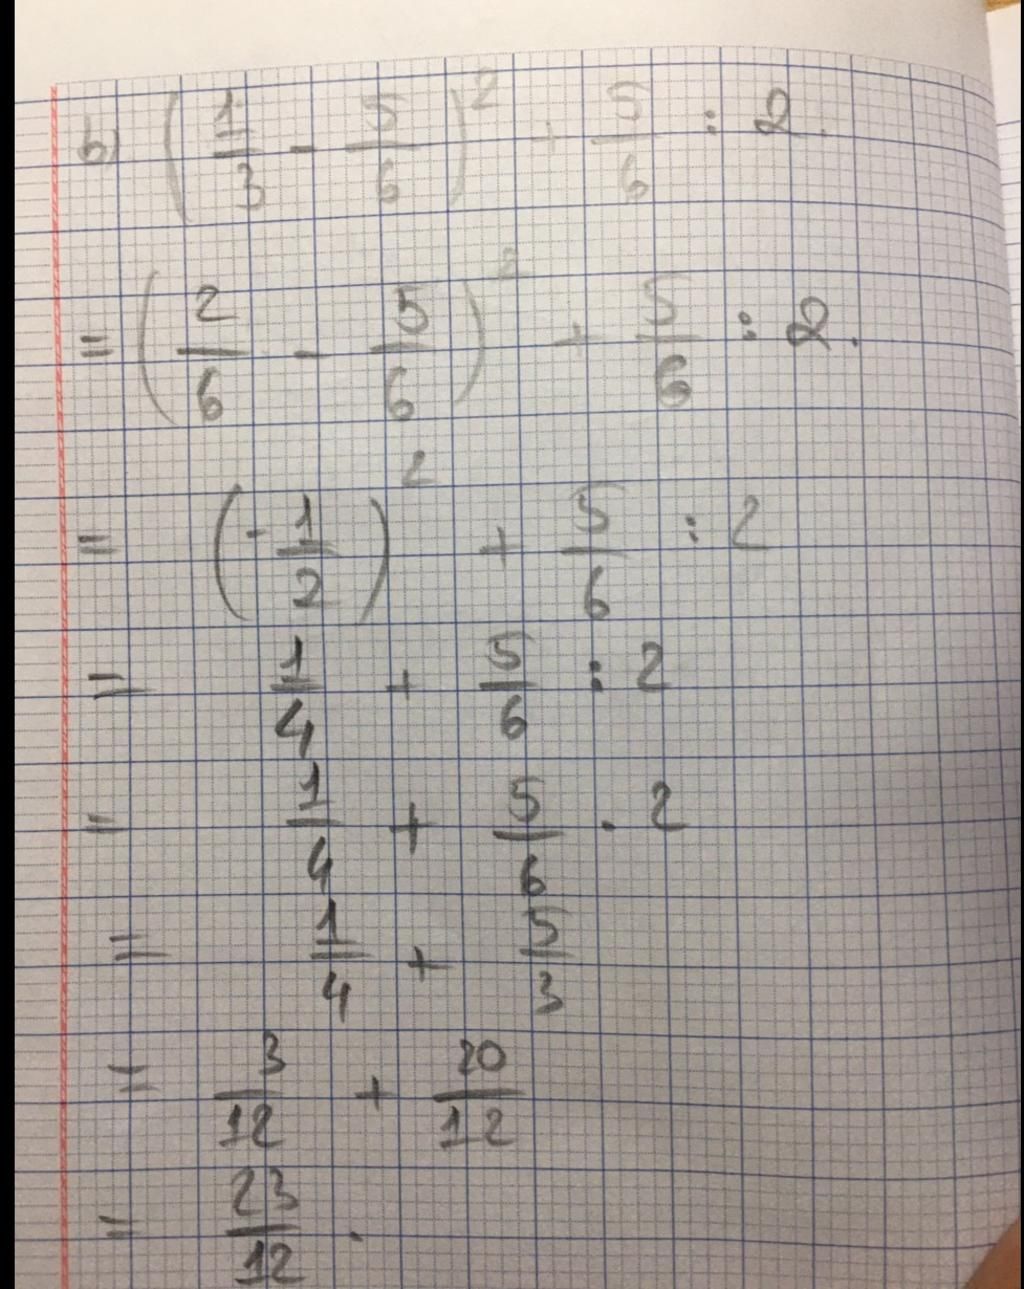 b) (1/3 - 5/6)² + 5/6 : 2.
= (2/6 - 5/6)² + 5/6 : 2.
= (-1/2)² + 5/6 : 2
= 1/4 + 5/6 : 2
= 1/4 + 5/6 . 2
= 1/4 + 5/3
= 3/12 + 20/12
= 23/12 .